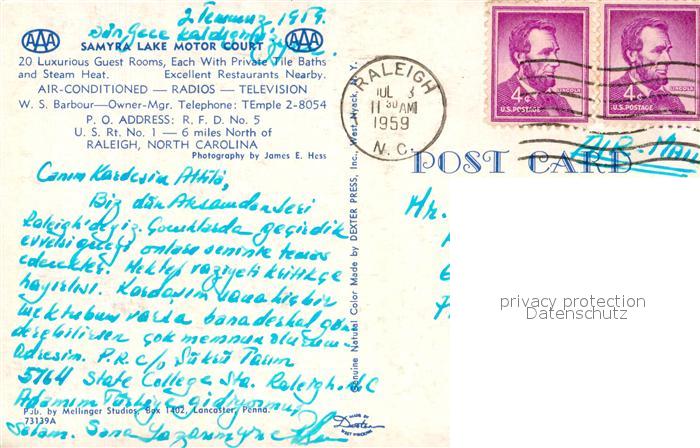 2 Temmuz, 1959.
Dün gece kaldığımız
AAA
AAA
SAMYRA LAKE MOTOR COURT
20 Luxurious Guest Rooms, Each With Private Tile Baths
and Steam Heat. Excellent Restaurants Nearby.
AIR-CONDITIONED — RADIOS — TELEVISION
W. S. Barbour—Owner-Mgr. Telephone: TEmple 2-8054
P. O. ADDRESS: R. F. D. No. 5
U. S. Rt. No. 1 — 6 miles North of
RALEIGH, NORTH CAROLINA
Photography by James E. Hess
Canım Kardeşim Attilâ,
Biz dün Akşamdan beri
Raleigh'deyiz. Çocuklarda geçirdik
evvelsi geceyi onlar seninle temas
edecekler. Mektep vaziyeti kritikçe
hayırlısı. Kardaşım bana hiç bir
mektubum varsa bana derhal
gönderebilirsen çok memnun olurum.
Adresim. P.R. c/o Şükrü
5764 State College Sta. Raleigh. NC
Adamım Türkiye gidiyormuş
Selam. Sana Yazarım yine
Pub. by Mellinger Studios, Box 1402, Lancaster, Penna.
73139A
Genuine Natural Color Made by DEXTER PRESS, Inc., West Nyack, N. Y.
MADE BY
Dexter
WEST NYACK, N.Y.
RALEIGH
JUL 3
11 30 AM
1959
N. C.
LINCOLN
4¢
U.S. POSTAGE
LINCOLN
4¢
U.S. POSTAGE
POST CARD
AIR-Mail
Mr.
privacy protection
Datenschutz